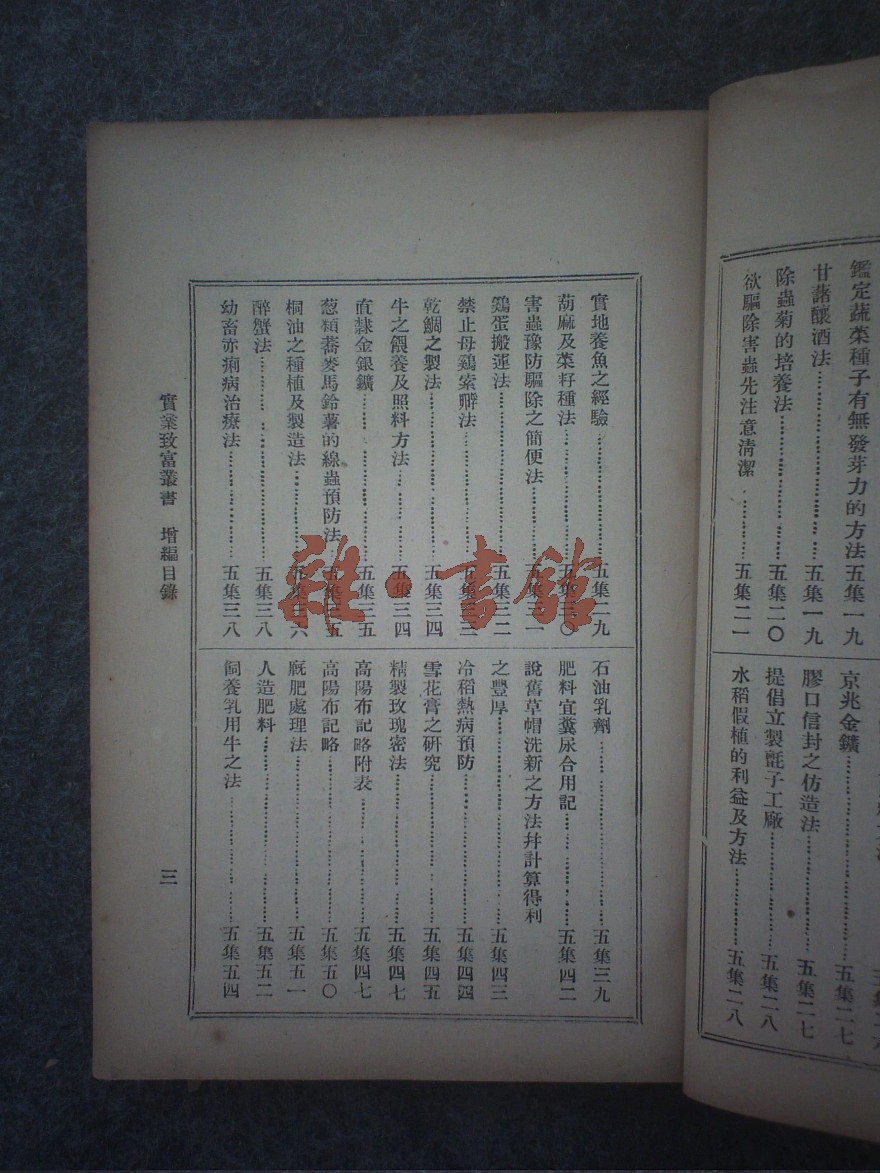 鑑定蔬菜種子有無發芽力的方法五集一九
甘藷釀酒法五集一九
除蟲菊的培養法五集二〇
欲驅除害蟲先注意清潔五集二一
京兆金鑛五集二七
膠口信封之仿造法五集二七
提倡立製氈子工廠五集二八
水稻假植的利益及方法五集二八
實地養魚之經驗五集二九
葫麻及菜籽種法五集三〇
害蟲豫防驅除之簡便法五集三一
鷄蛋搬運法五集三二
禁止母鷄索孵法五集三三
乾鯛之製法五集三四
牛之餵養及照料方法五集三四
直隸金銀鑛五集三五
葱類蕎麥馬鈴薯的線蟲預防法五集三五
桐油之種植及製造法五集三六
醉蟹法五集三八
幼畜赤痢病治療法五集三八
石油乳劑五集三九
肥料宜糞尿合用記五集四二
說舊草帽洗新之方法幷計算得利
之豐厚五集四三
冷稻熱病預防五集四四
雪花膏之研究五集四五
精製玫瑰密法五集四七
高陽布記略附表五集四七
高陽布記略五集五〇
廐肥處理法五集五一
人造肥料五集五二
飼養乳用牛之法五集五四
實業致富叢書 增編目錄
三
雜·書館